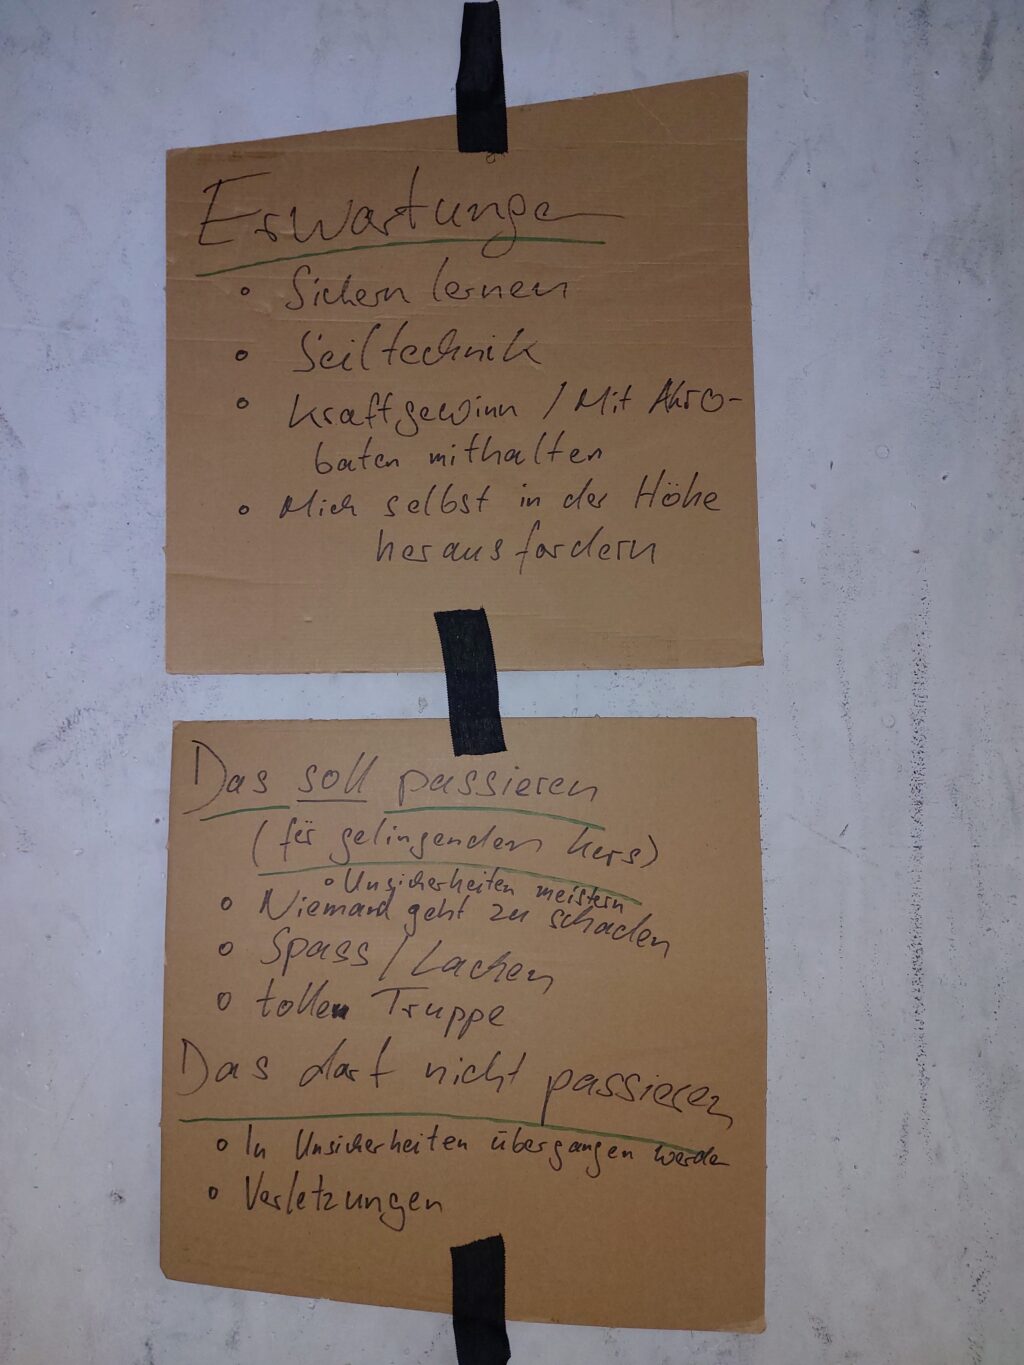 Erwartungen
• Sichern lernen
• Seiltechnik
• Kraftgewinn / Mit Akro-
baten mithalten
• Mich selbst in der Höhe
herausfordern
Das soll passieren
(für gelingenden Kurs)
• Unsicherheiten meistern
• Niemand geht zu schaden
• Spass / Lachen
• tollen Truppe
Das darf nicht passieren
• In Unsicherheiten übergangen werden
• Verletzungen